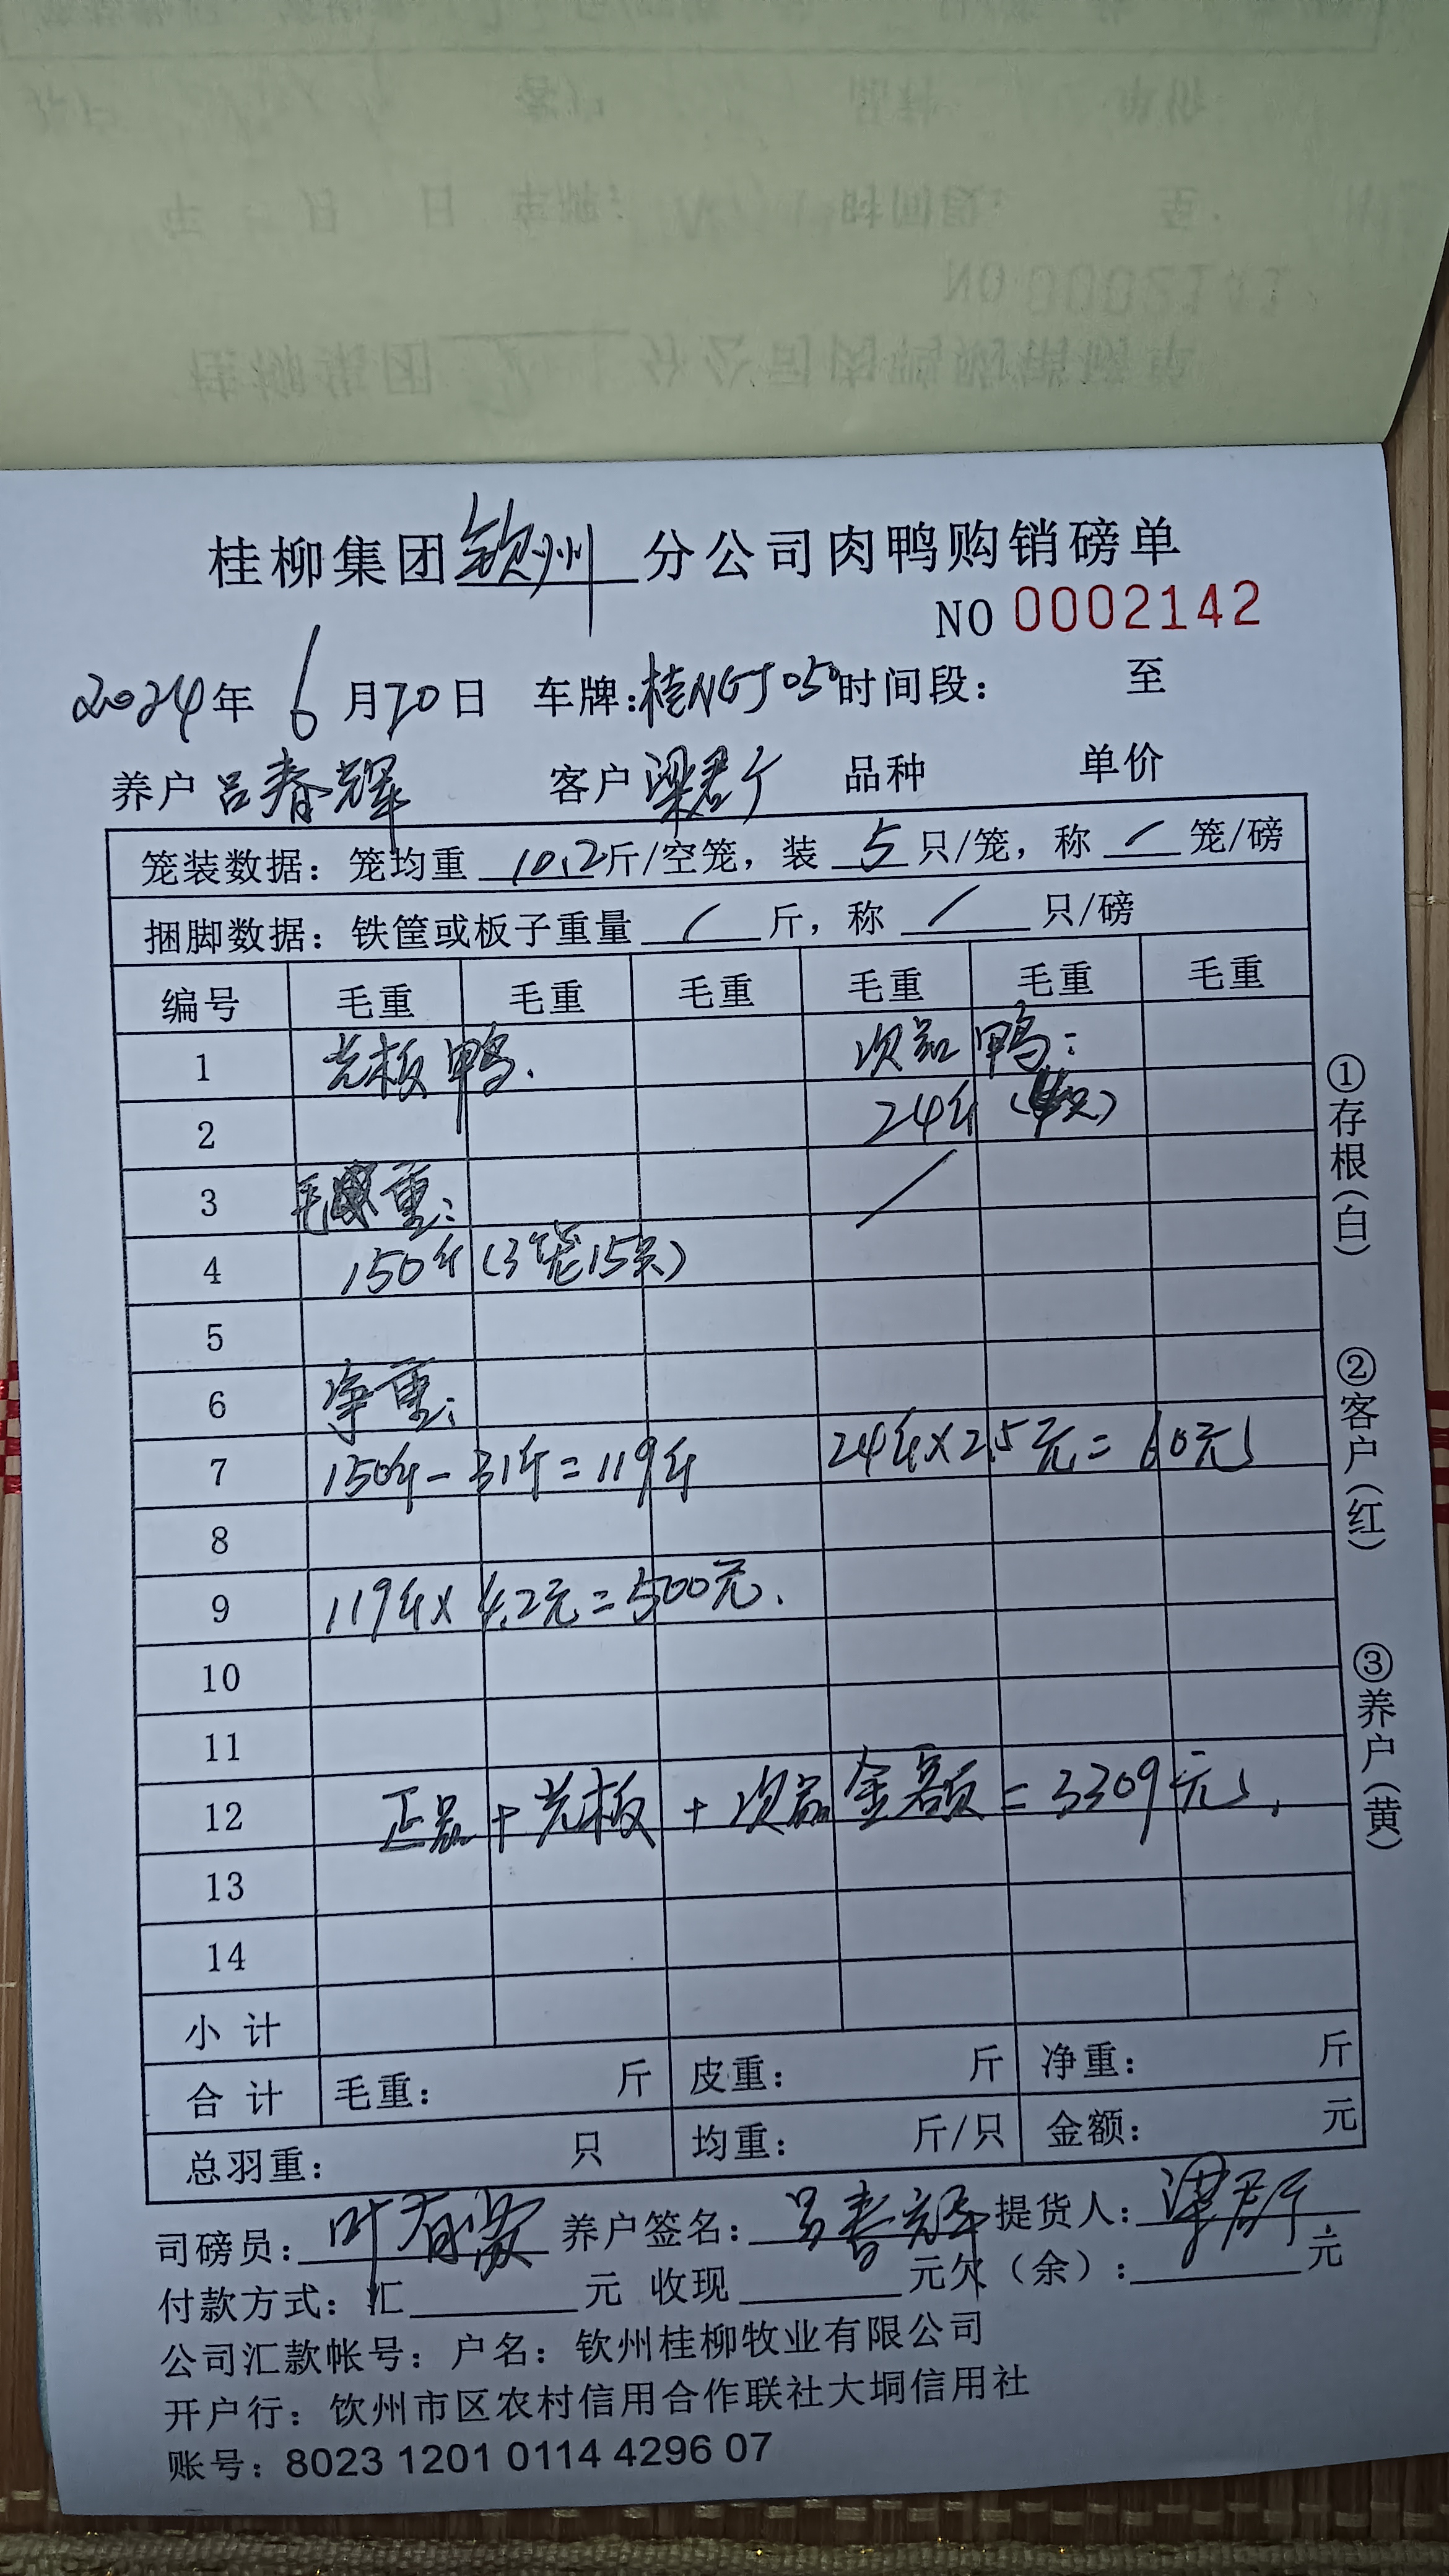 桂柳集团钦州分公司肉鸭购销磅单
NO 0002142
2024年 6月20日 车牌:桂NGJ050 时间段: 至
养户 吕春辉 客户 梁君 品种 单价
笼装数据: 笼均重 10.2斤/空笼, 装 5 只/笼, 称 / 笼/磅
捆脚数据: 铁筐或板子重量 / 斤, 称 / 只/磅
编号 毛重 毛重 毛重 毛重 毛重 毛重
1 光板鸭. 次品鸭:
2 24斤
3 毛重: /
4 150斤(3笼15只)
5
6 净重:
7 150斤-31斤=119斤 24斤×2.5元=60元
8
9 119斤×4.2元=500元.
10
11
12 正品+光板+次品金额=3309元.
13
14
小计
合计 毛重: 斤 皮重: 斤 净重: 斤
总羽重: 只 均重: 斤/只 金额: 元
司磅员: 叶 养户签名: 吕春辉 提货人: 梁君
付款方式: 汇 元 收现 元欠(余): 元
公司汇款帐号: 户名: 钦州桂柳牧业有限公司
开户行: 钦州市区农村信用合作联社大垌信用社
账号: 8023 1201 0114 4296 07
①存根(白)
②客户(红)
③养户(黄)